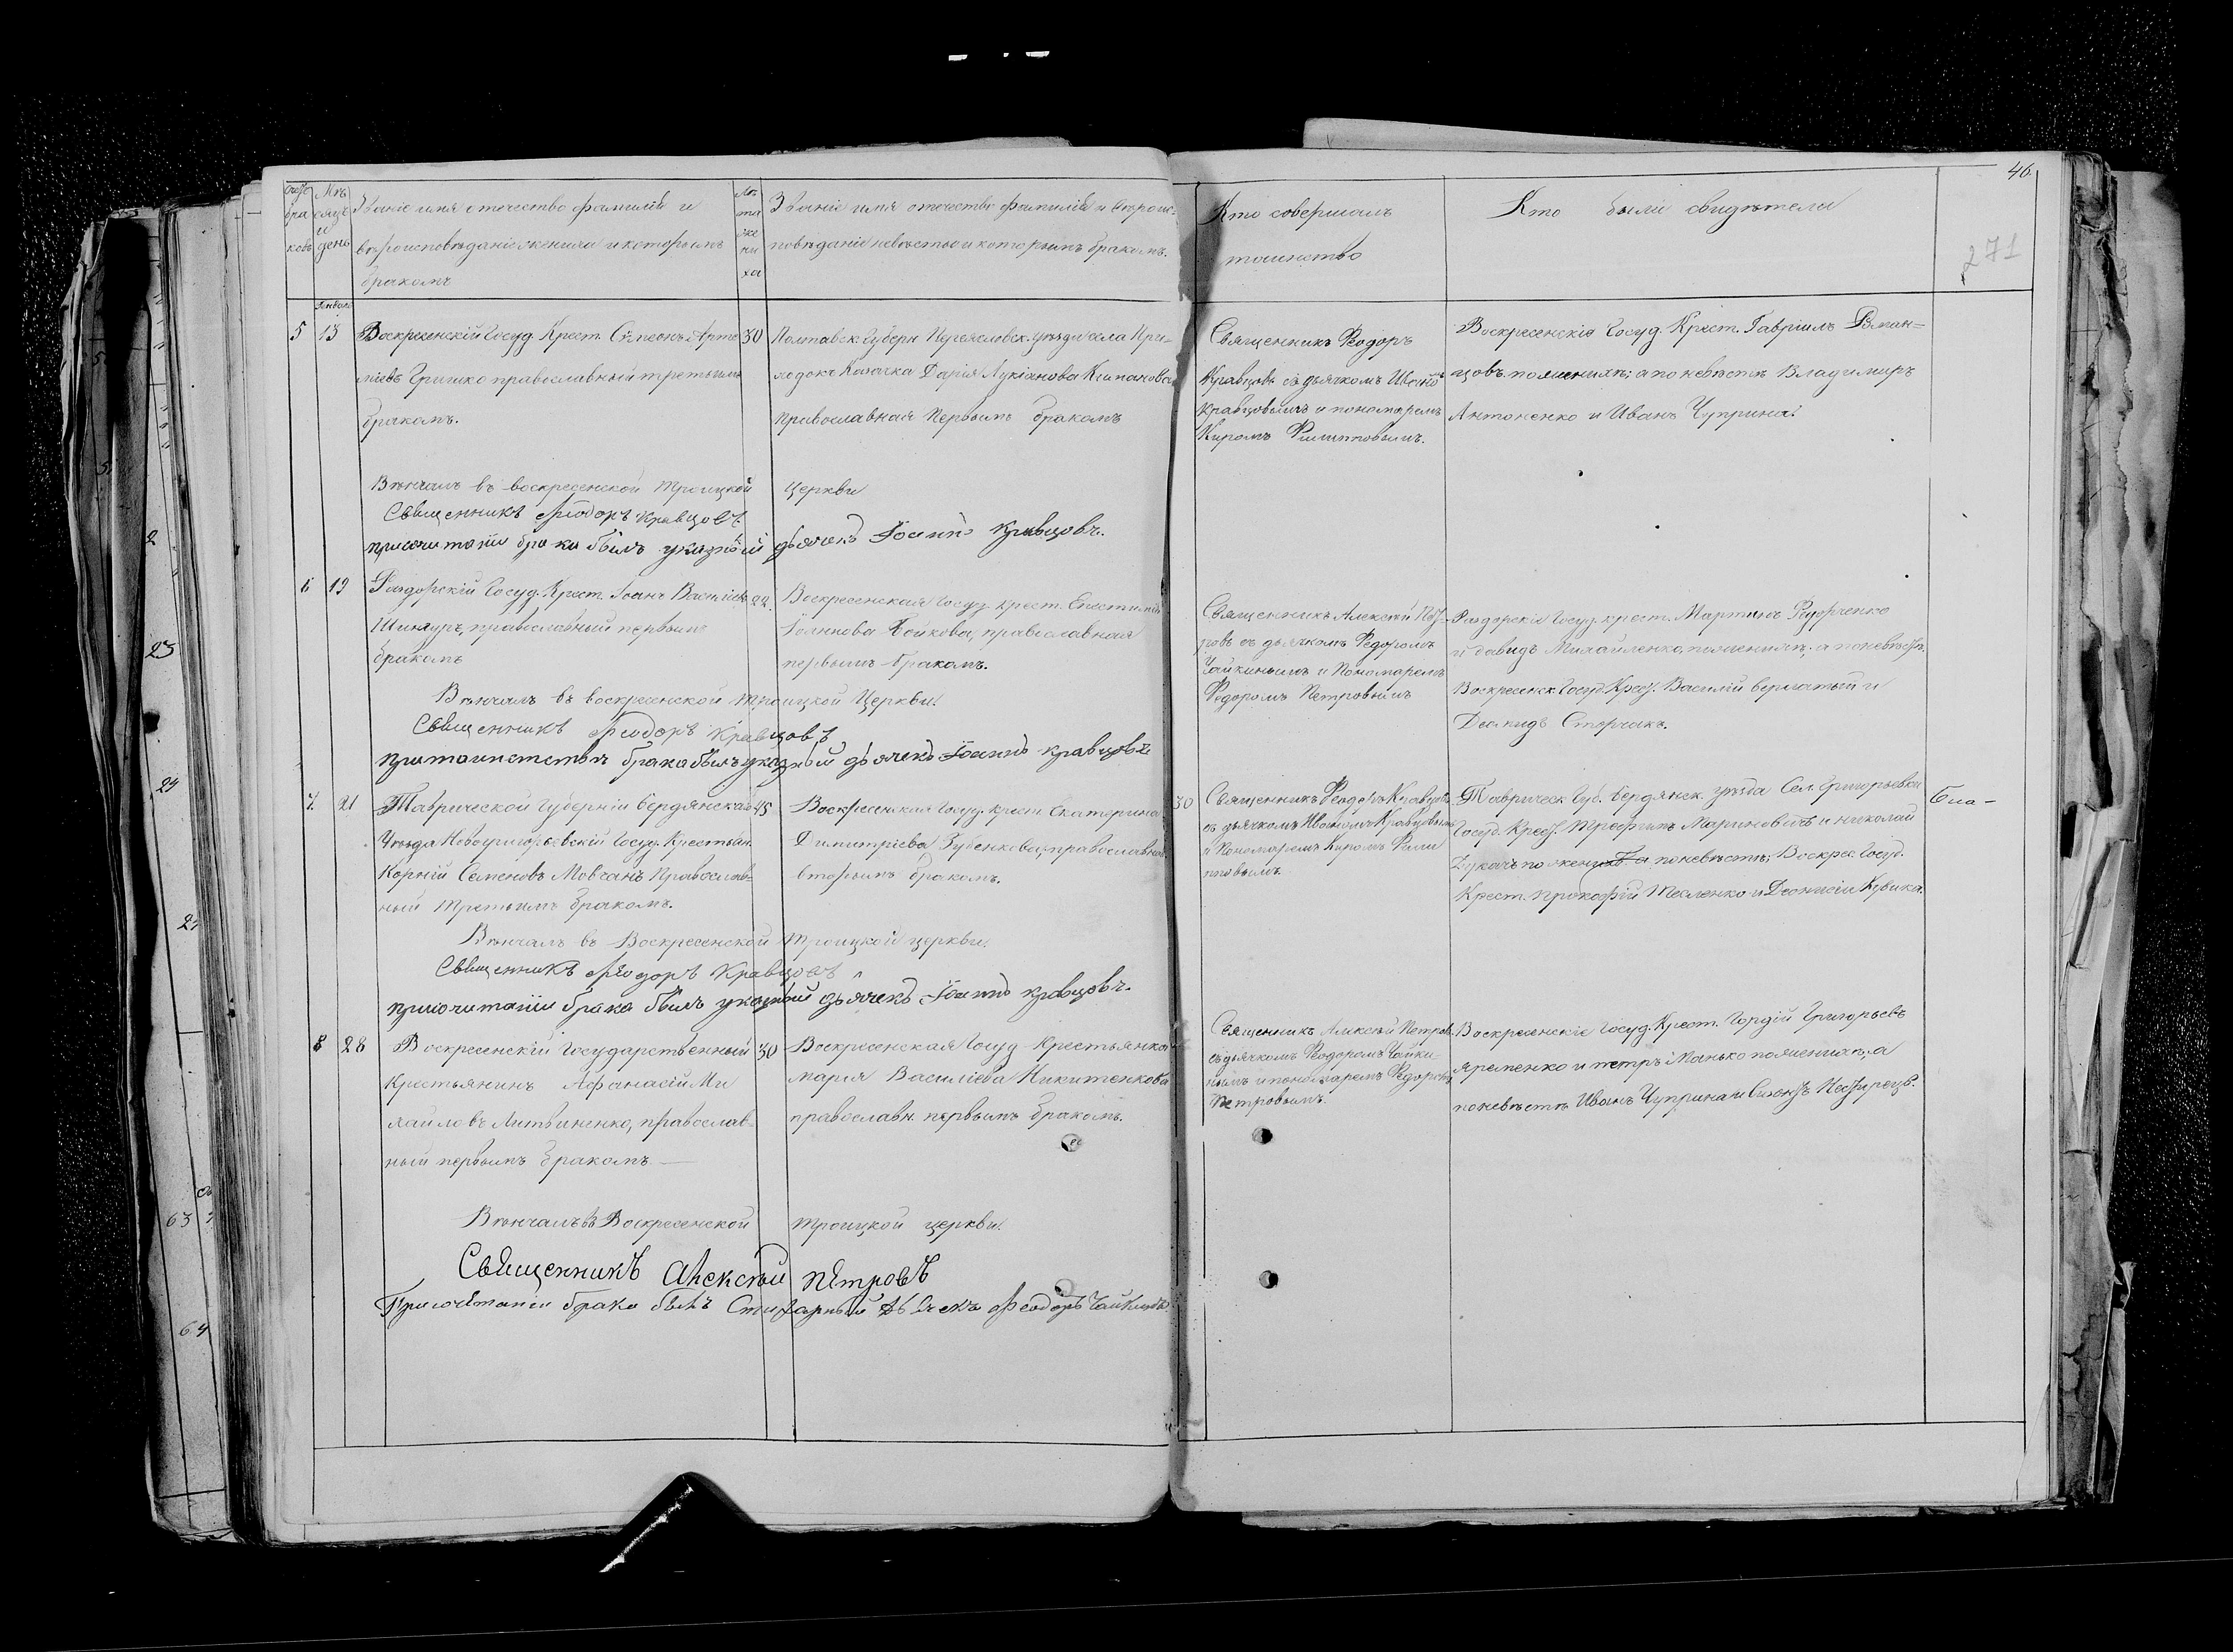 46
271
Счетъ браковъ
Мѣсяцъ и день
Званіе имя отечество фамилія и
вѣроисповѣданіе жениха и которымъ
бракомъ
Лѣта жениха
Званіе имя отечество фамилія и вѣроис-
повѣданіе невѣсты и которымъ бракомъ.
Кто совершалъ
таинство
Кто были свидѣтели
Январь
5 13
Воскресенскій Госуд. Крест. Сѵмеонъ Арте
міевъ Гришко православный третьимъ
бракомъ.
30
Полтавск. Губерн. Переясловск. уѣзда села При-
ходокъ Казачка Дарія Лукіанова
православная первымъ бракомъ
Священникъ Ѳеодоръ
Кравцовъ съ дьячкомъ Иваномъ
Кравцовымъ и пономаремъ
Киромъ Филипповымъ.
Воскресенскіе Госуд. Крест. Гавріилъ Роман=
цовъ по женихѣ; а по невѣстѣ Владимиръ
Антоненко и Иванъ Чуприна.
Вѣнчалъ въ воскресенской троицкой церкви
Священникъ Ѳеодоръ Кравцовъ.
присочитаніи брака былъ указный дьячекъ Іоаннъ Кравцовъ.
6 19
Раздорскій Госуд. Крест. Іоанъ Василіевъ
Шинкуръ, православный первымъ
бракомъ
22.
Воскресенская Госуд. крест. Епистимія
Іоаннова Бойкова, православная
первымъ бракомъ.
Священникъ Алексѣй Пет-
ровъ съ дьячкомъ Ѳедоромъ
Чайкинымъ и Пономаремъ
Ѳедоромъ Петровымъ
Раздорскіе Госуд. крест. Мартинъ Ѳедорченко
и давидъ Михайленко, по женихѣ; а по невѣстѣ.
Воскресенск. Госуд. Крест. Василій вернатый и
Демидъ Сторчакъ.
Вѣнчалъ въ воскресенской троицкой Церкви.
Священникъ Ѳеодоръ Кравцовъ
притаинствѣ брака былъ указный дьячекъ Іоаннъ Кравцовъ
7. 21
Таврической Губерніи Бердянскаго
Уѣзда Новогригорьевскій Госуд. Крестьян.
Корній Семеновъ Мовчанъ православ=
ный третьимъ бракомъ.
45
Воскресенская Госуд. крест. Екатерина
Димитріева Зубенкова, православная
вторымъ бракомъ.
30
Священникъ Ѳеодоръ Кравцовъ
съ дьячкомъ Иваномъ Кравцовымъ
и Пономаремъ Киромъ Фили
повымъ
Тавричск. Губ. Бердянск. уѣзда Сел. Григорьевки
Госуд. Крест. Трофимъ Мариновичъ и николай
Дукачъ по женихѣ а по невѣстѣ; Воскрес. Госуд.
Крест. Прокофій Тесленко и Діонисій Кувика.
Вѣнчалъ въ Воскресенской троицкой церкви.
Священникъ Ѳеодоръ Кравцовъ
присочитаніи брака былъ указный дьячекъ Іоаннъ Кравцовъ.
8 28
Воскресенскій Государственный
Крестьянинъ Афанасій Ми
хаиловъ Литвиненко, православ-
ный первымъ бракомъ
30
Воскресенская Госуд. Крестьянка
Марія Василіева Никитенкова
православн. первымъ бракомъ.
Священникъ Алексѣй Петровъ
съ дьячкомъ Ѳеодоромъ Чайки-
нымъ и пономаремъ Ѳедоромъ
Петровымъ.
Воскресенскіе Госуд. Крест. Гордій Григорьевъ
яременко и петръ Манько по женихѣ, а
по невѣстѣ Иванъ Чуприна и
Вѣнчалъ въ Воскресенской троицкой церкви.
Священникъ Алексѣй Петровъ
Присочетаніи брака былъ Стихарный Дьячекъ Ѳеодоръ Чайкинъ